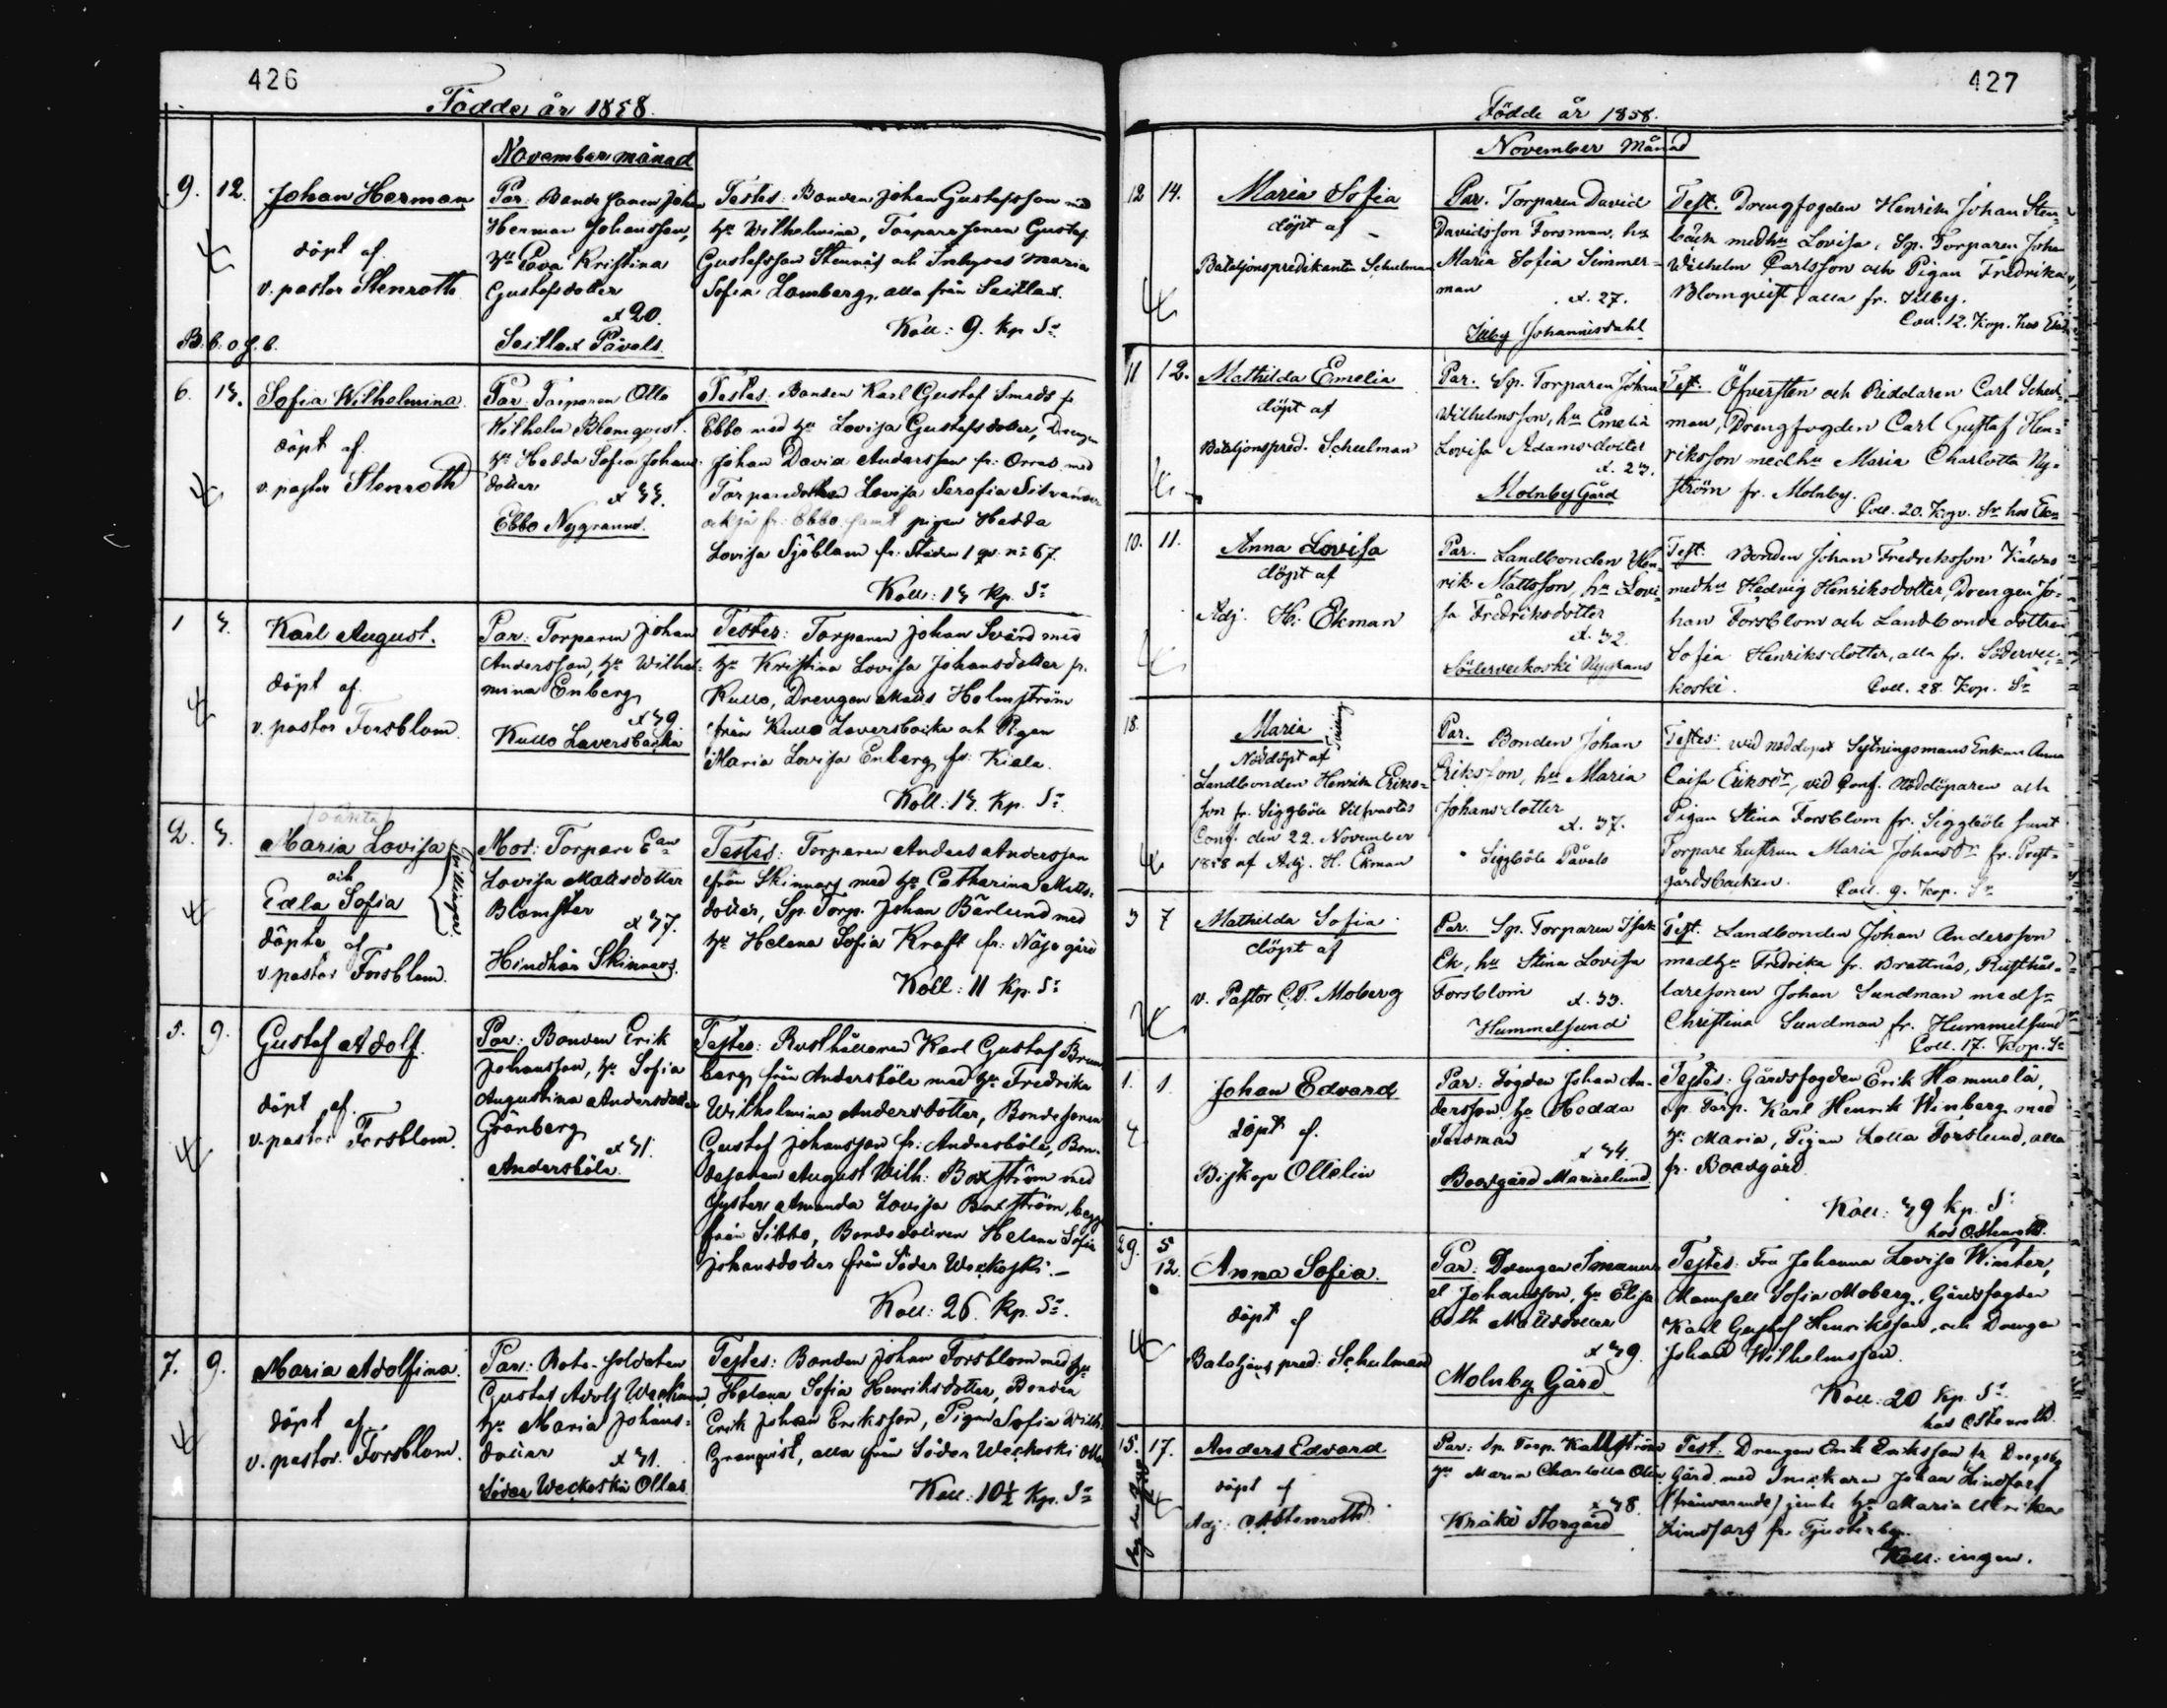 426
Födde år 1858.
November månad
9. 12. Johan Herman
döpt af
v. pastor Stenroth
B. b. o. f. b.
Par: Bonde sonen Johan
Herman Johansson,
hu Eva Kristina
Gustafsdotter
æt 20.
Seitlax Påvals
Testes: Bonden Johan Gustafsson med
hu Wilhelmina, Torpare sonen Gustaf
Gustafsson Stennäs och Inhyses Maria
Sofia Lomberg, alla från Seitlax.
Koll: 9. Kp. Sr
6. 13. Sofia Wilhelmina
döpt af
v. pastor Stenroth
Par: Torparen Otto
Wilhelm Blomqvist
hu Hedda Sofia Johans-
dotter
æt 33.
Ebbo Nygranns.
Testes: Bonden Karl Gustaf Smeds fr.
Ebbo med hu Lovisa Gustafsdotter, Drengen
Johan David Andersson fr. Orras med
Torparedottren Lovisa Serafia Silvander
också fr. Ebbo samt pigan Hedda
Lovisa Sjöblom fr. Staden 1 qv. n: 67.
Koll: 13 Kp. Sr
1 3. Karl August.
döpt af
v. pastor Forsblom
Par: Torparen Johan
Andersson, hu Wilhel-
mina Enberg
æt 39.
Kullo Laversbacka
Testes: Torparen Johan Svärd med
hu Kristina Lovisa Johansdotter fr.
Kullo, Drengen Matts Holmström
från Kullo Laversbacka och Pigan
Maria Lovisa Enberg fr. Kiala.
Koll: 13. Kp. Sr
2. 3. (oäkta)
Maria Lovisa
och
Edla Sofia
Tvillingar
döpte af
v. pastor Forsblom.
Mor: Torpare Ean
Lovisa Mattsdotter
Blomster
æt 37.
Hindhår Skinnars.
Testes: Torparen Anders Andersson
från Skinnars med hu Catharina Matts-
dotter, Sp. Torp. Johan Bärlund med
hu Helena Sofia Kraft fr. Näse gård
Koll: 11 Kp. Sr
5. 9. Gustaf Adolf.
döpt af
v. pastor Forsblom.
Par: Bonden Erik
Johansson, hu Sofia
Augustina Andersdotter
Grönberg
æt 31.
Andersböle.
Testes: Rusthållaren Karl Gustaf Brun-
berg från Andersböle med hu Fredrika
Wilhelmina Andersdotter, Bondesonen
Gustaf Johansson fr. Andersböle, Bon-
desonen August Wilh: Boxström med
Syster Amanda Lovisa Boxström, begge
från Sibbo, Bondedottren Helena Sofia
Johansdotter från Söder Weckoski.—
Koll: 26. Kp. Sr.
7. 9. Maria Adolfina.
döpt af
v. pastor Forsblom.
Par: Rote-soldaten
Gustaf Adolf Weckman,
hu Maria Johans-
dotter
æt 31.
Söder Weckoski Ollas
Testes: Bonden Johan Forsblom med hu
Helena Sofia Henriksdotter, Bonden
Erik Johan Eriksson, Pigan Sofia Wilh.
Granqvist, alla från Söder Weckoski Ollas
Koll: 10½ Kp. Sr
427
Födde år 1858.
November Månad
12 14. Maria Sofia
döpt af
Bataljonspredikanten Schulman
Par. Torparen David
Davidsson Forsman, hu
Maria Sofia Simmer-
man
æt. 27.
Ilby Johannisdahl
Test. Drengfogden Henrik Johan Sten-
bäck med hu Lovisa, Sp. Torparen Johan
Wilhelm Carlsson och Pigan Fredrika
Blomqvist, alla fr. Illby.
Coll. 12. Kop. hos
11 12. Mathilda Emelia
döpt af
Bataljonspred. Schulman
Par. Sp. Torparen Johan
Wilhelmsson, hu Emelia
Lovisa Adamsdotter
æt. 23.
Molnby Gård
Test. Öfversten och Riddaren Carl Schul-
man, Drengfogden Carl Gustaf Hen-
riksson med hu Maria Charlotta Ny-
ström fr. Molnby.
Coll. 20. Kop. Sr hos
10. 11. Anna Lovisa
döpt af
Adj. H. Ekman
Par. Landbonden Hen-
rik Mattsson, hu Lovi-
sa Fredriksdotter
æt. 32.
Söderveckoski Nygrans
Test: Bonden Johan Fredriksson
med hu Hedvig Henriksdotter, Drengen Jo-
han Forsblom och Landbonde dottren
Sofia Henriksdotter, alla fr. Södervec-
koski.
Coll. 28. Kop. Sr
18. Maria
Tvilling
Nöddöpt af
Landbonden Henrik Eriks-
son fr. Siggböle
Conf. den 22. November
1858 af Adj. H. Ekman
Par. Bonden Johan
Eriksson, hu Maria
Johansdotter
æt. 37.
Siggböle Påvals
Testes: wid nöddopet Sytningsmans Enkan Anna
Caisa Eriksdr, vid Conf. Nöddöparen och
Pigan Stina Forsblom fr. Siggböle samt
Torpare hustrun Maria Johansdr fr. Prest-
gårdsbacken.
Coll. 9. Kop. Sr
3 7 Mathilda Sofia
döpt af
v. Pastor C. F. Moberg
Par. Sp. Torparen Isak
Ek, hu Stina Lovisa
Forsblom
æt. 33.
Hummelsund
Test. Landbonden Johan Andersson
med hu Fredrika fr. Brattnäs, Rusthål-
laresonen Johan Sundman med
Christina Sundman fr. Hummelsund
Coll. 17. Kop. Sr
1. 1 Johan Edvard
döpt af
Biskop Ottelin
Par: Fogden Johan An-
dersson, hu Hedda
Forsman
æt 34.
Boesgård Marielund
Testes: Gårdsfogden Erik Hammelä,
Sp. Torp. Karl Henrik Winberg med
hu Maria, Pigan Lotta Forslund, alla
fr. Boesgård
Koll: 39 kp. Sr
hos O. Stenroth.
29. 5/12. Anna Sofia.
döpt af
Bataljons pred: Schulman
Par: Drengen Imanu-
el Johansson, hu Elisa-
beth Mattsdotter
æt 39.
Molnby Gård
Testes: Fru Johanna Lovisa Winter,
Mamsell Sofia Moberg, Gårdsfogden
Karl Gustaf Henriksson, och Drengen
Johan Wilhelmsson.
Koll: 20 kp. Sr
hos O Stenroth.
15. 17. Anders Edvard
döpt af
Adj: O Stenroth
Par: Sp. Torp. Karl
hu Maria Charlotta
æt 38.
Kråkö Storgård
Test: Drengen Erik Eriksson fr. Drägsby
Gård med Snickaren Johan Lindfors
(frånvarande) jemte hu Maria Ulrika
Lindfors fr. Tjusterby.
Koll: ingen.